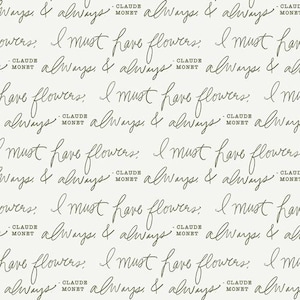 always. & always - CLAUDE MONET
flowers. I must have flowers.
CLAUDE MONET always. & always - CLAUDE MONET
have flowers. I must have flowers.
always - CLAUDE MONET always. & always - CLAUDE MONET
must have flowers. I must have flowers.
always. & always - CLAUDE MONET always. &
flowers. I must have flowers.
CLAUDE MONET always. & always - CLAUDE MONET
have flowers. I must have flowers.
always - CLAUDE MONET always. & always - CLAUDE MONET